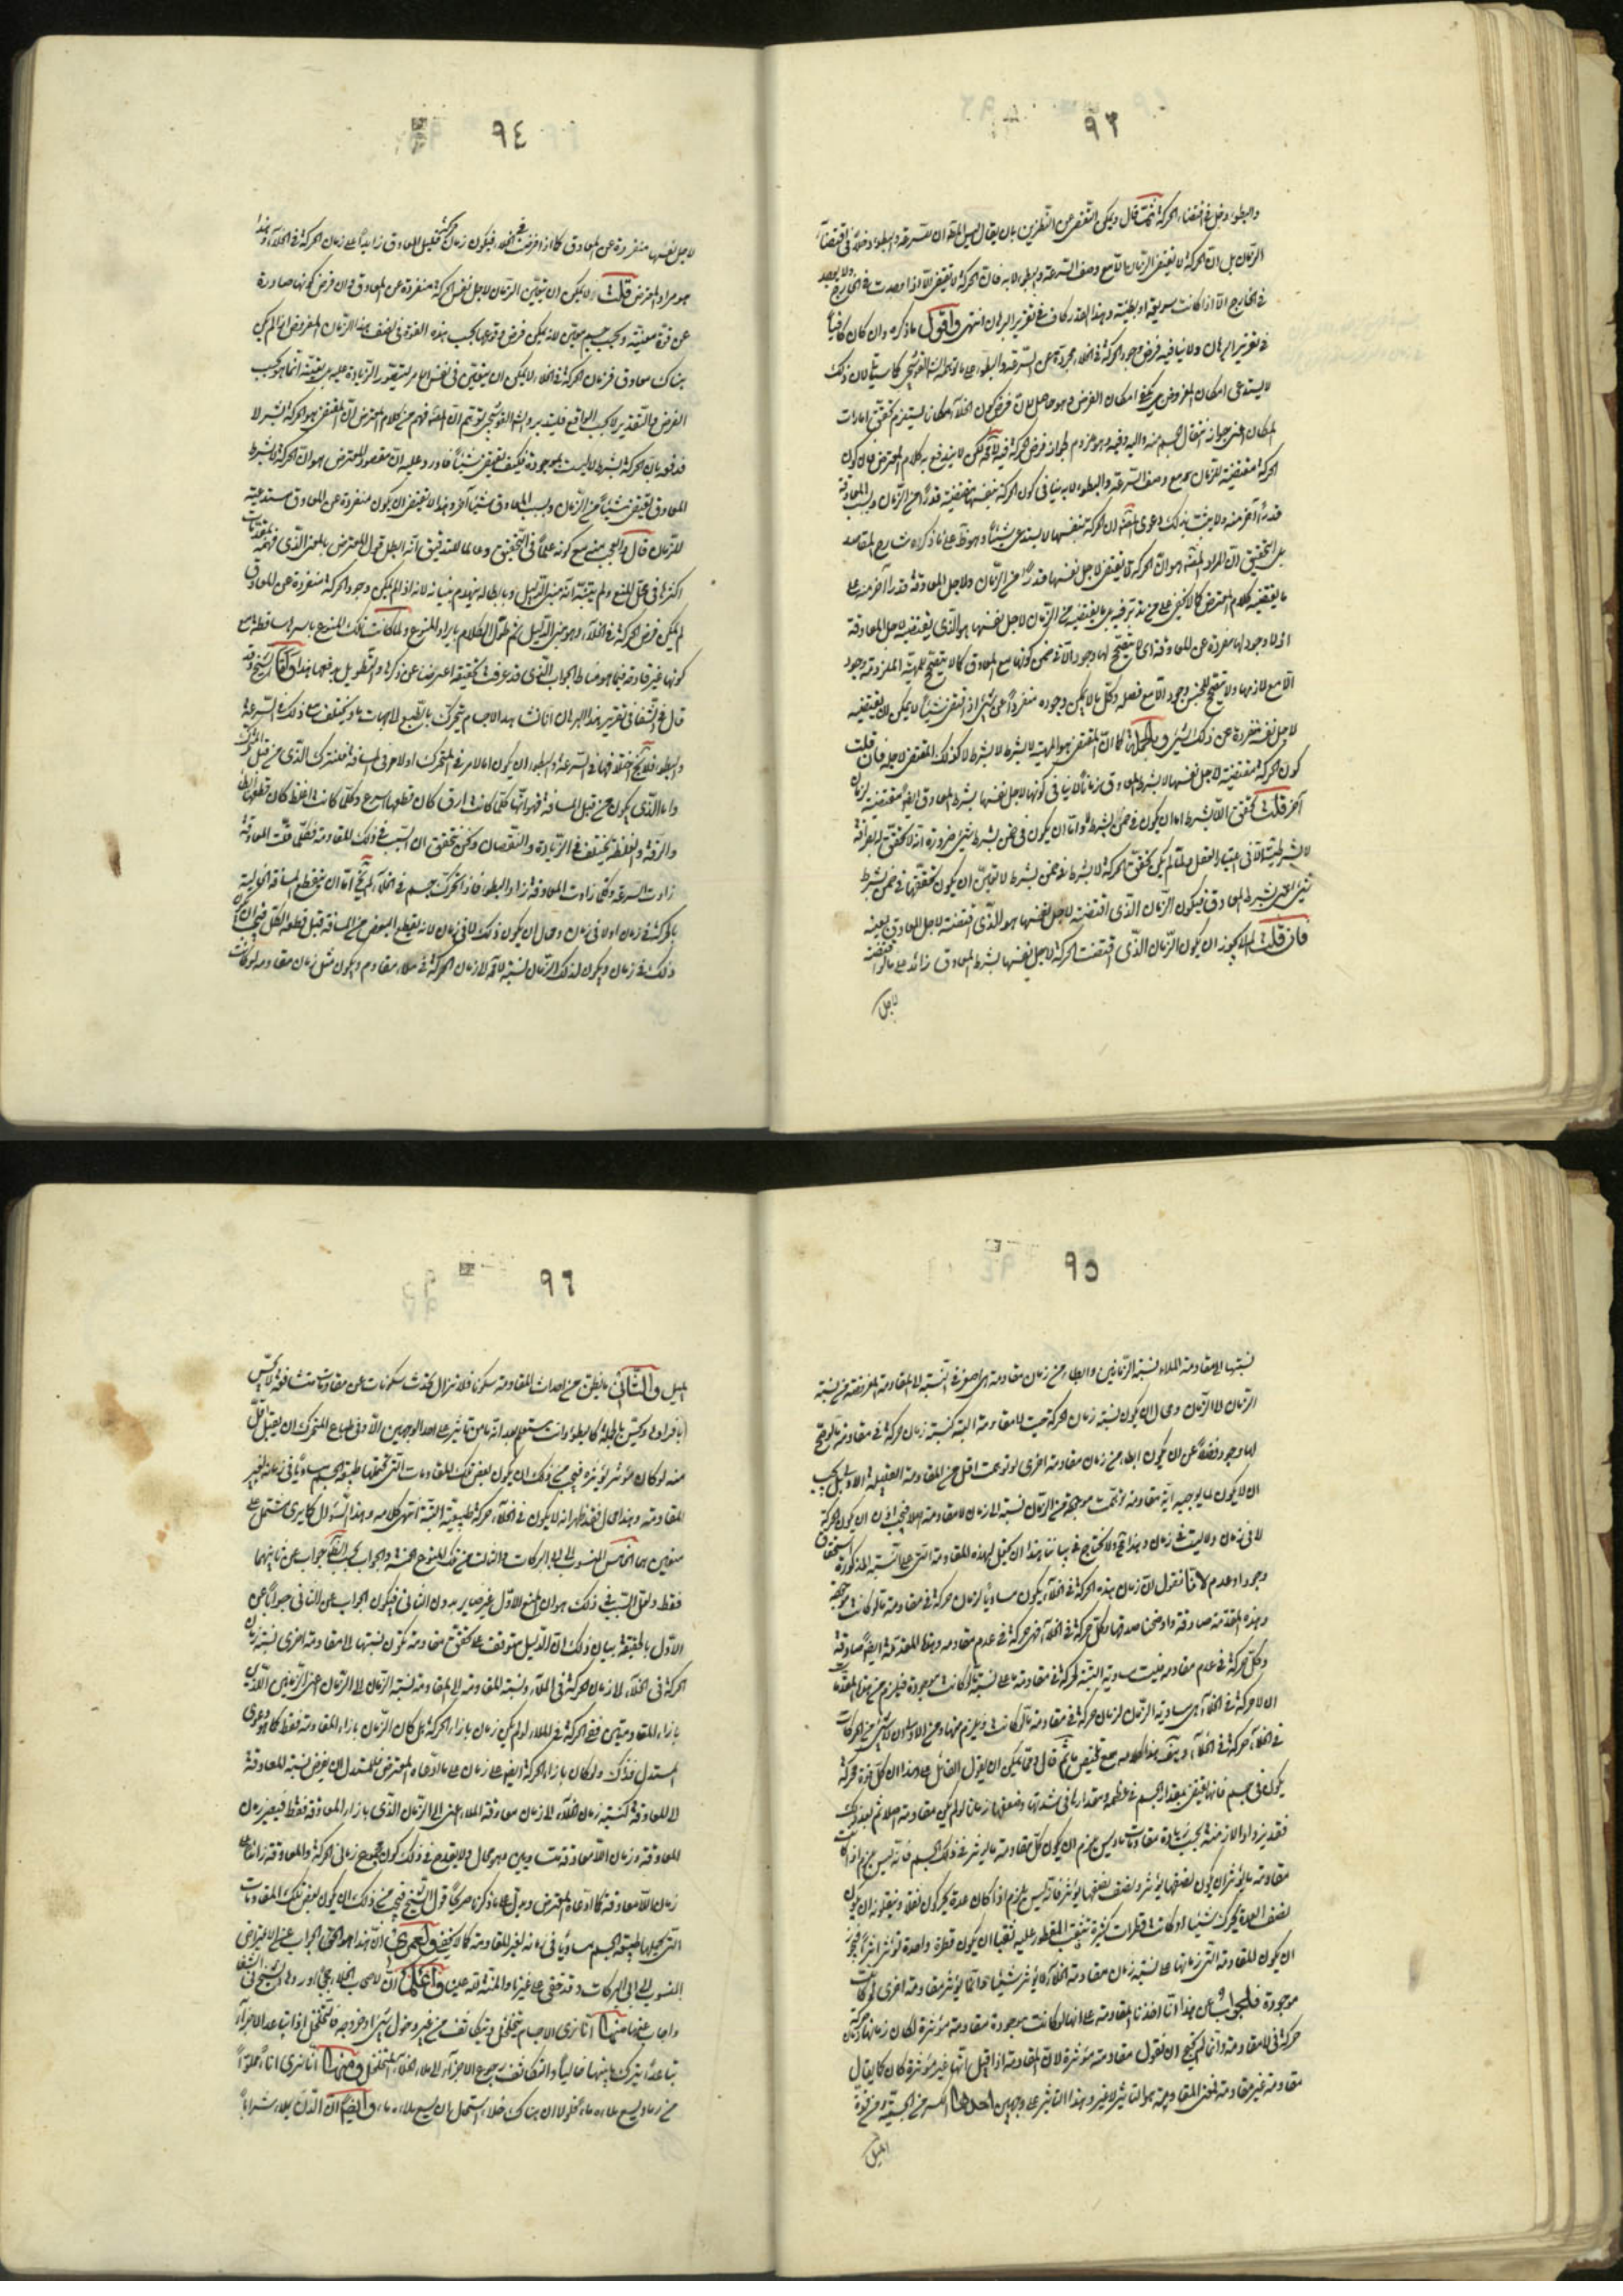 ٩٣
والبطؤ دخل في اقتضاء الحركة انتهت قال ويمكن التفصي عن النظرين بان يقال ليس المراد ان للسرعة والبطوء دخلا في اقتضاء
الزمان بل ان الحركة لا تقتضي الزمان الا مع وصف السرعة والبطوء لا به فان الحركة لا تقتضي الا اذا وجدت في الخارج ولا توجد
في الخارج الا اذا كانت سريعة او بطيئة وهذا القدر كاف في تقرير البرهان انتهى واقول ما ذكره وان كان كافيا
في تقرير البرهان ولا ينافيه فرض وجود الحركة في الخلاء مجردة عن السرعة والبطوء على ما توهمه الشارح القوشجي كما سيأتي لان ذلك
لا يستدعي امكان المفروض بل يكفي امكان الفرض وهو حاصل لان فرض كون الخلاء مكانا يستلزم تحقق امارات
المكان اعني جواز انتقال الجسم منه واليه وفيه وهو ملزوم لجواز فرض الحركة فيه لكن لا يندفع به كلام المعترض فان كون
الحركة مقتضية للزمان مع وصف السرعة والبطوء لا به ينافي كون الحركة بنفسها مقتضية قدرا من الزمان وبسبب المعاوقة
قدرا آخر منه ولا يثبت بذلك دعوى ان الحركة بنفسها لا يستدعي شيئا وهو ظ على ما ذكره شارح المقاصد
بل التحقيق ان المراد هو ان الحركة لا يقتضي لاجل نفسها قدرا من الزمان ولاجل المعاوقة قدرا آخر منه على
ما يقتضيه كلام المعترض كما لا يخفى على من تدبر فيه بل ما يقتضيه من الزمان لاجل نفسها هو الذي يقتضيه لاجل المعاوقة
اذ لا وجود لها منفردة عن المعاوقة اي لا يتصحح لها وجود الا في ضمن كونها مع المعاوق كما لا يتصحح للمهية الملزومة وجود
الا مع لازمها ولا يتصحح للجنس وجود الا مع فصله وكل ما لا يمكن وجوده منفردا عن شيء اذا اقتضى شيئا لا يمكن ان يقتضيه
لاجل نفسه منفردة عن ذلك الشيء وبالجملة كما ان المقتضي هو المهية لا بشرط لا بشرط لا كذلك المقتضي لاجله فان قلت
كون الحركة مقتضية لاجل نفسها لا بشرط المعاوق زمانا لا ينافي كونها لاجل نفسها بشرط المعاوق ايضا مقتضية لزمان
آخر قلت تحقق اللا بشرط اما ان يكون في ضمن بشرط لا واما ان يكون في ضمن بشرط شيء ضرورة انه لا تحقق له بصرافة
لا بشرطيته الا في اعتبار العقل ولما لم يكن تحقق الحركة لا بشرط في ضمن بشرط لا تعين ان يكون تحققها في ضمن بشرط
شيء اعني بشرط المعاوق فيكون الزمان الذي اقتضته لاجل نفسها هو الذي اقتضته لاجل المعاوق بعينه
فان قلت لم لا يجوز ان يكون الزمان الذي اقتضت الحركة لاجل نفسها بشرط المعاوق زائدا على ما لو اقتضته
لاجل
٩٤
لاجل نفسها منفردة عن المعاوق كما اذا فرضت في الخلاء فيكون زمان حركة قليل المعاوق زايدا على زمان الحركة في الخلاء وهذا
هو مراد المعترض قلت لا يمكن ان يتعين الزمان لاجل نفس الحركة منفردة عن المعاوق وان فرض كونها صادرة
عن قوة معينة وبحسب جسم معين لانه يمكن فرض وقوعها بحسب هذه القوة في نصف هذا الزمان المفروض اذا لم يكن
هناك معاوق فزمان الحركة في الخلاء لا يمكن ان يتعين في نفس الامر ليتصور الزيادة عليه بل تعينه انما هو بحسب
الفرض والتقدير لا بحسب الواقع فليتدبر والشارح القوشجي لتوهم ان المصنف فهم من كلام المعترض ان المقتضي هو الحركة بشرط لا
فدفعه بان الحركة بشرط لا ليست بموجودة فكيف تقتضي شيئا فاورد عليه ان مقصود المعترض هو ان الحركة لا بشرط
المعاوق تقتضي شيئا من الزمان وبسبب المعاوق شيئا آخر وهذا لا يقتضي ان يكون منفردة عن المعاوق مستدعية
للزمان قال والعجب منه مع كونه علما في التحقيق وعالما للتدقيق انه ابطل قول المعترض بالمعنى الذي فهمه بمقدمات
اكثرها في محل المنع ولم يتنبه انه مبنى الدليل وبابطاله ينهدم بنيانه لانه اذا لم يكن وجود الحركة منفردة عن المعاوق
لم يمكن فرض الحركة في الخلاء وهو مبنى الدليل ثم طول الكلام بايراد المنوع ولما كانت تلك المنوع باسرها ساقطة مع
كونها غير قادحة فيما هو مناط الجواب الذي قد عرفت تحقيقه اعرضنا عن ذكرها والتطويل بدفعها هذا وكان الشيخ قد
قال في الشفا في تقرير هذا البرهان انا نشاهد الاجسام تتحرك بالطبع لا جهات ما وتختلف مع ذلك في السرعة
والبطوء فلا يخ اختلافها في السرعة والبطوء ان يكون اما لامر في المتحرك او لامر في المسافة فلنترك الذي من قبل المتحرك
واما الذي يكون من قبل المسافة فهو انها كلما كانت ارق كان قطعها اسرع وكلما كانت اغلظ كان قطعها ابطأ
والرقة والغلظة تختلف في الزيادة والنقصان ونحن نتحقق ان السبب في ذلك المقاومة فكلما قلت المعاوقة
زادت السرعة وكلما زادت المعاوقة زاد البطوء فاذا تحرك جسم في الخلاء لم يخ اما ان يقطع المسافة الخالية
بالحركة في زمان او لا في زمان ومحال ان يكون ذلك لا في زمان لانه يقطع البعض من المسافة قبل قطعه الكل فيجب ان يكون
ذلك في زمان ويكون لذلك الزمان نسبة لا محالة لزمان الحركة في ملاء مقاوم ويكون مثل زمان مقاومة لو كانت
٩٥
نسبتها الى مقاومة الملاء نسبة الزمانين وابطأ من زمان مقاومة هي اصغر في النسبة الى المقاومة المفروضة من نسبة
الزمان الى الزمان ومحال ان يكون نسبة زمان الحركة حيث لا مقاومة البتة كنسبة زمان حركة في مقاومة ما لو صح
لها وجود فضلا عن ان يكون ابطأ من زمان مقاومة اخرى لو توهمت اقل من المقاومة القليلة الاولى بل يجب
ان لا يكون لما يوجبه اية مقاومة توهمت موجبة من الزمان نسبة الى زمان لا مقاومة اصلا فيجب اذن ان يكون الحركة
لا في زمان وليست في زمان وهذا مح ولا نحتاج في بياننا هذا ان نجعل لهذه المقاومة التي على النسبة المذكورة استحقاق
وجود او عدم لانا نقول ان زمان هذه الحركة في الخلاء يكون مساويا لزمان حركة في مقاومة ما لو كانت موجودة
وهذه المقدمة صادقة واوضحنا صدقها وكل حركة في الخلاء فهي حركة في عدم مقاومة وهذه المقدمة ايضا صادقة
وكل حركة في عدم مقاومة فليست مساوية البتة لحركة في مقاومة ما على نسبة ما لو كانت موجودة فيلزم من هذه المقدمات
ان لا حركة في الخلاء هي مساوية الزمان لزمان حركة في مقاومة ما لو كانت ويلزم منها ومن الاولى ان لا شيء من الحركات
في الخلاء حركة في الخلاء وهذا كلامه مع تلخيص ما ثم قال ومما يمكن ان يقول القائل على هذا ان كل قوة محركة
يكون في جسم فانها تقتضي بمقدار الجسم في عظمه ومقدارها في شدتها وضعفها زمانا لو لم يكن مقاومة اصلا ثم بعد ذلك
فقد يزداد الازمنة بحسب زيادة مقاومات ما وليس يلزم ان يكون كل مقاومة ما يؤثر في ذلك الجسم فانه ليس يلزم اذا كانت
مقاومة ما يؤثر ان يكون نصفها يؤثر ونصف نصفها يؤثر فانه ليس يلزم اذا كان عدة يحركون ثقلا وينقلونه ان يكون
نصف العدة يحرك شيئا او كانت قطرات كثيرة تثقب المقطور عليه ثقبا ان يكون قطرة واحدة تؤثر اثرا فيجوز
ان يكون المقاومة التي زمانها على نسبة زمان مقاومة الخلاء لا يؤثر شيئا وانما يؤثر مقاومة اخرى لو كانت
موجودة فالجواب عن هذا انا اخذنا المقاومة على انها لو كانت موجودة مقاومة مؤثرة لكان زمانها زمان حركة
حركة في لا مقاومة وانما لم نحتج ان نقول مقاومة مؤثرة لان المقاومة اذا قيل انها غير مؤثرة كان كما يقال
مقاومة غير مقاومة فمعنى المقاومة هو التأثير لا غير وهذا التأثير على وجهين احدهما الكسر من الحمية ومن قوة
الميل
٩٦
الميل والثاني ما يظن من احداث المقاومة سكونا فلا تزال تحدث سكونات عن مقاومات متشافعة لا يحس
بافرادها ويحس بالجملة كالبطوء وانت ستعلم بعد انه ما من تأثير على احد الوجهين الا وفي طباع المتحرك ان يقبل اقل
منه لو كان مؤثر يؤثره فيجب من ذلك ان يكون بعض تلك المقاومات التي تحتملها طبيعة الجسم مساويا في زمانه لغير
المقاومة وهذا محال فقد ظهر انه لا يكون في الخلاء حركة طبيعية البتة انتهى كلامه وهذا السؤال كما يرى مشتمل على
منعين هما الخامس المنسوب الى ابي البركات والثالث من تلك المنوع الخمسة والجواب بحسب الظاهر جواب عن ثانيهما
فقط ولعل السبب في ذلك هو ان المنع الاول غير صاير بدون الثاني فيكون الجواب عن الثاني جوابا عن
الاول بالحقيقة بيان ذلك ان الدليل متوقف على تحقق مقاومة تكون نسبتها الى مقاومة اخرى نسبة زمان
الحركة في الخلاء لا زمان الحركة في الملاء ونسبة المقاومة الى المقاومة نسبة الزمان الى الزمان اعني الزمانين اللذين
بازاء المقاومتين ففي الحركة في الملاء لو لم يكن زمان بازاء الحركة بل كان الزمان بازاء المقاومة فقط كما هو دعوى
المستدل فذاك ولو كان بازاء الحركة ايضا زمان على ما ادعاه المعترض فللمستدل ان يفرض نسبة المعاوقة
الى المعاوقة كنسبة زمان الخلاء الى زمان معاوقة الملاء اعني الى الزمان الذي بازاء المعاوقة فقط فيصير زمان
المعاوقة وزمان اللا معاوقة متساويين وهو محال ولا يقدح في ذلك كون مجموع زماني الحركة والمعاوقة زائدا على
زمان اللا معاوقة كما ادعاه المعترض ويدل على ما ذكرنا صريحا قول الشيخ فيجب من ذلك ان يكون بعض تلك المقاومات
التي يحتملها طبيعة الجسم مساويا في زمانه لغير المقاومة كما لا يخفى ولعمري ان هذا هو الحق في الجواب عن الاعتراض
المنسوب الى ابي البركات وقد خفي على غيرنا والمنة لله علينا واعلم ان لاصحاب الخلاء حججا اوردها الشيخ في الشفا
واجاب عنها منها انا نرى الاجسام يتخلخل ويتكاثف من غير دخول شيء او خروجه فالتخلخل اذا تباعد الاجزاء
تباعدا يترك ما بينها خاليا والتكاثف رجوع الاجزاء الى ملاء الخلاء المتخلخل ومنها انا نرى اناء مملوا
من رماد يسع ملاءه ماء فلولا ان هناك خلاء استحمل ان يسع ملاءه ماء وايضا ان الدن يملاء شرابا